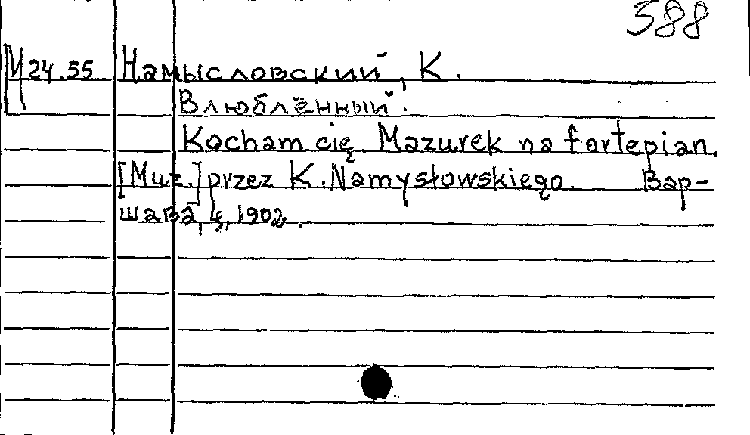 588
М 24.55 Намысловский, К.
Влюблённый.
Kocham cię. Mazurek na fortepian.
[Muz.] przez K. Namysłowskiego. Вар-
шава, 1902.